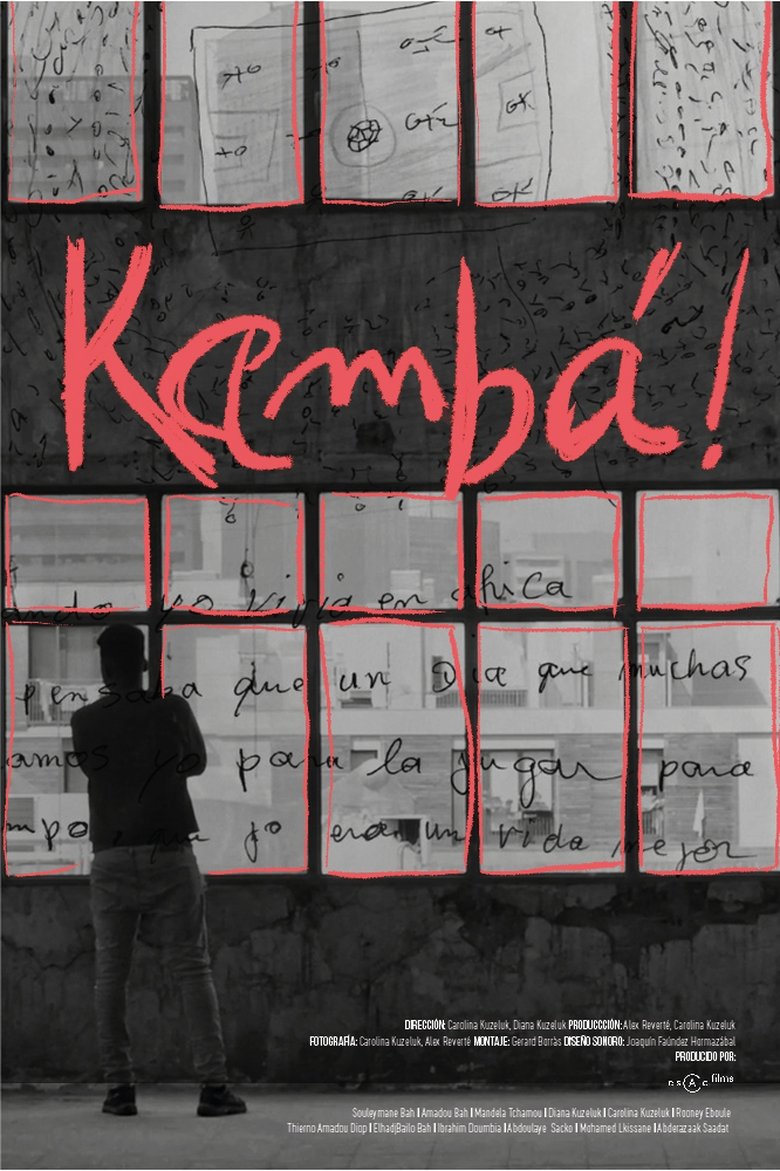 Kembá!
yo vivia en africa
pensaba que un Dia que muchas
amos yo para la jugar para
mpo, que jo eran un vida mejor
DIRECCIÓN: Carolina Kuzeluk, Diana Kuzeluk PRODUCCCIÓN: Alex Reverté, Carolina Kuzeluk
FOTOGRAFÍA: Carolina Kuzeluk, Alex Reverté MONTAJE: Gerard Borràs DISEÑO SONORO: Joaquín Faúndez Hormazábal
PRODUCIDO POR:
esAc films
Souleymane Bah | Amadou Bah | Mandela Tchamou | Diana Kuzeluk | Carolina Kuzeluk | Rooney Eboule
Thierno Amadou Diop | Elhadj Bailo Bah | Ibrahim Doumbia | Abdoulaye Sacko | Mohamed Lkissane | Abderazaak Saadat